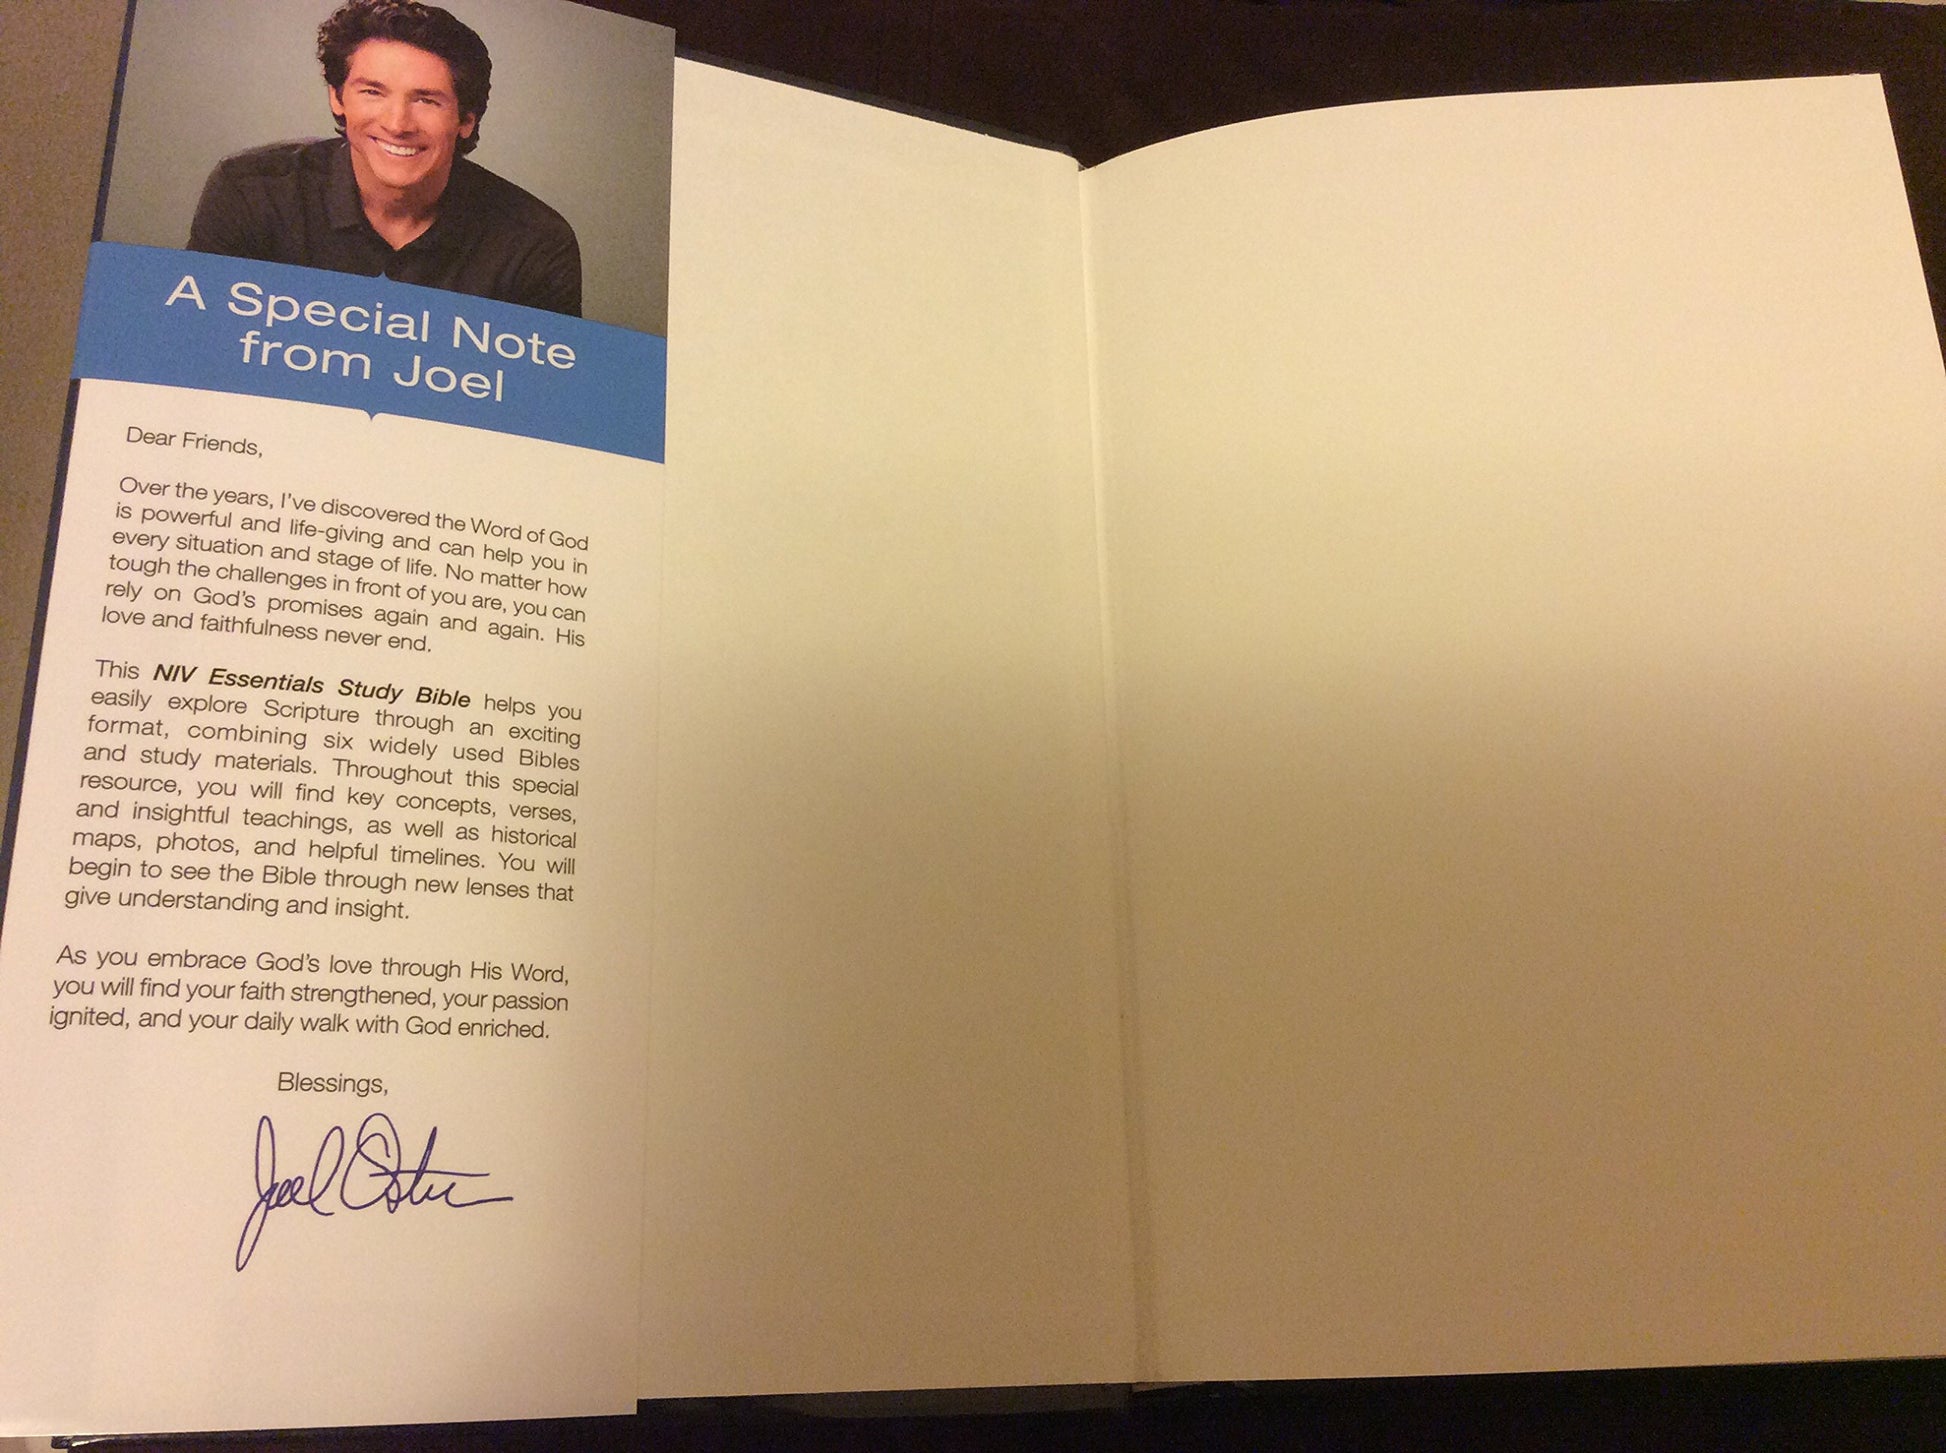 A Special Note
from Joel
Dear Friends,
Over the years, I've discovered the Word of God
is powerful and life-giving and can help you in
every situation and stage of life. No matter how
tough the challenges in front of you are, you can
rely on God's promises again and again. His
love and faithfulness never end.
This NIV Essentials Study Bible helps you
easily explore Scripture through an exciting
format, combining six widely used Bibles
and study materials. Throughout this special
resource, you will find key concepts, verses,
and insightful teachings, as well as historical
maps, photos, and helpful timelines. You will
begin to see the Bible through new lenses that
give understanding and insight.
As you embrace God's love through His Word,
you will find your faith strengthened, your passion
ignited, and your daily walk with God enriched.
Blessings,
Joel Osteen